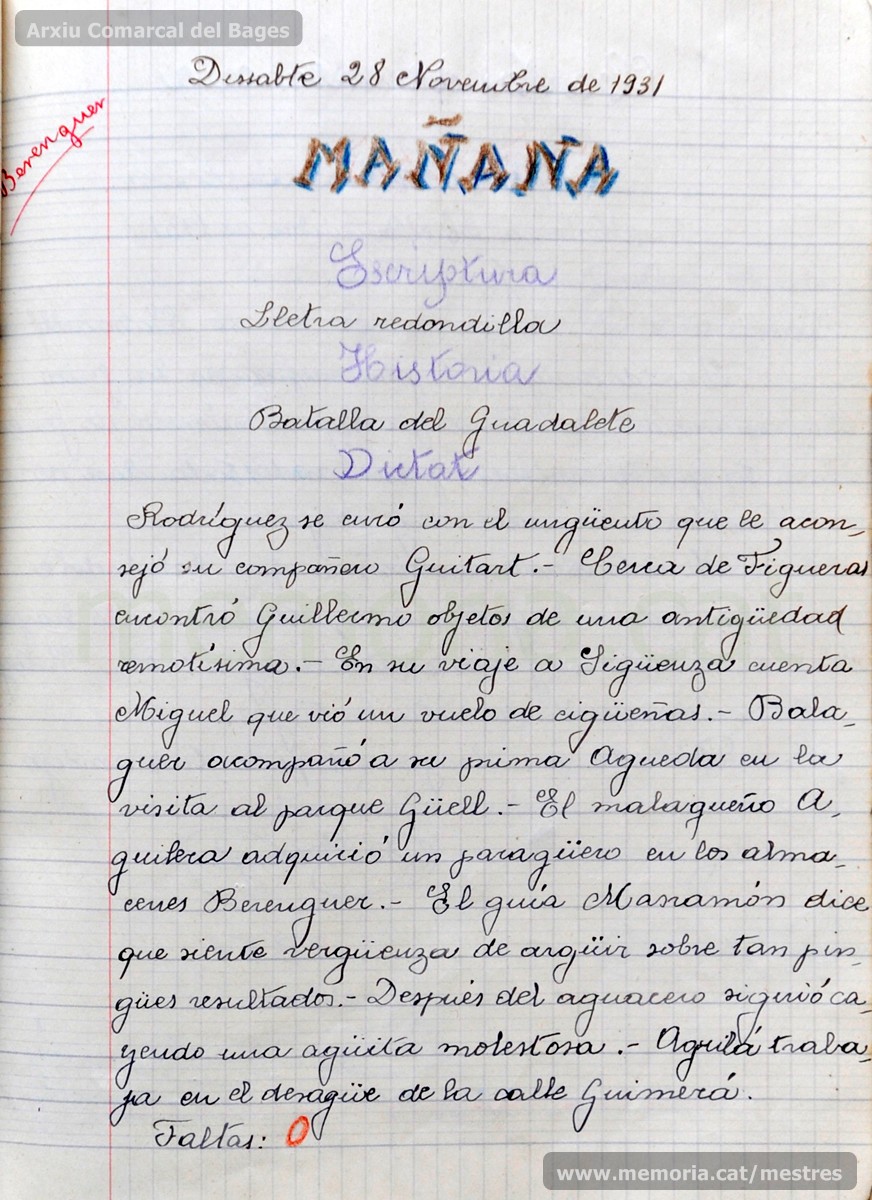 Arxiu Comarcal del Bages
Dissabte 28 Novembre de 1931
Berenguer
MAÑANA
Escriptura
Lletra redondilla
Historia
Batalla del Guadalete
Dictat
Rodríguez se curó con el ungüento que le acon-
sejó su compañero Guitart.- Cerca de Figueras
encontró Guillermo objetos de una antigüedad
remotísima.- En su viaje a Sigüenza cuenta
Miguel que vió un vuelo de cigüeñas.- Bala-
guer acompañó a su prima Agueda en la
visita al parque Güell.- El malagueño A-
guilera adquirió un paragüero en los alma-
cenes Berenguer.- El guía Masramón dice
que siente vergüenza de argüir sobre tan pin-
gües resultados.- Después del aguacero siguió ca-
yendo una agüita molestosa.- Aguilá traba-
ja en el desagüe de la calle Guimerá.
Faltas: 0
www.memoria.cat/mestres